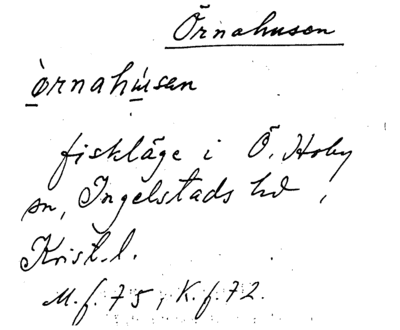 Örnahusen
òrnahu̇sen
fiskläge i Ö. Hoby
sn, Ingelstads hd,
Krist. l.
M. f. 75, K. f. 72.